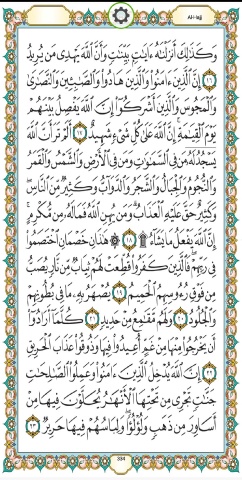 Al-Hajj
وَكَذَٰلِكَ أَنزَلْنَٰهُ ءَايَٰتٍۭ بَيِّنَٰتٍ وَأَنَّ ٱللَّهَ يَهْدِى مَن يُرِيدُ
١٦ إِنَّ ٱلَّذِينَ ءَامَنُوا۟ وَٱلَّذِينَ هَادُوا۟ وَٱلصَّٰبِـِٔينَ وَٱلنَّصَٰرَىٰ
وَٱلْمَجُوسَ وَٱلَّذِينَ أَشْرَكُوٓا۟ إِنَّ ٱللَّهَ يَفْصِلُ بَيْنَهُمْ
يَوْمَ ٱلْقِيَٰمَةِ إِنَّ ٱللَّهَ عَلَىٰ كُلِّ شَىْءٍ شَهِيدٌ ١٧ أَلَمْ تَرَ أَنَّ ٱللَّهَ
يَسْجُدُ لَهُۥ مَن فِى ٱلسَّمَٰوَٰتِ وَمَن فِى ٱلْأَرْضِ وَٱلشَّمْسُ وَٱلْقَمَرُ
وَٱلنُّجُومُ وَٱلْجِبَالُ وَٱلشَّجَرُ وَٱلدَّوَآبُّ وَكَثِيرٌ مِّنَ ٱلنَّاسِ
وَكَثِيرٌ حَقَّ عَلَيْهِ ٱلْعَذَابُ وَمَن يُهِنِ ٱللَّهُ فَمَا لَهُۥ مِن مُّكْرِمٍ
إِنَّ ٱللَّهَ يَفْعَلُ مَا يَشَآءُ ۩ ١٨ هَٰذَانِ خَصْمَانِ ٱخْتَصَمُوا۟
فِى رَبِّهِمْ فَٱلَّذِينَ كَفَرُوا۟ قُطِّعَتْ لَهُمْ ثِيَابٌ مِّن نَّارٍ يُصَبُّ
مِن فَوْقِ رُءُوسِهِمُ ٱلْحَمِيمُ ١٩ يُصْهَرُ بِهِۦ مَا فِى بُطُونِهِمْ
وَٱلْجُلُودُ ٢٠ وَلَهُم مَّقَٰمِعُ مِنْ حَدِيدٍ ٢١ كُلَّمَآ أَرَادُوٓا۟
أَن يَخْرُجُوا۟ مِنْهَا مِنْ غَمٍّ أُعِيدُوا۟ فِيهَا وَذُوقُوا۟ عَذَابَ ٱلْحَرِيقِ
٢٢ إِنَّ ٱللَّهَ يُدْخِلُ ٱلَّذِينَ ءَامَنُوا۟ وَعَمِلُوا۟ ٱلصَّٰلِحَٰتِ
جَنَّٰتٍ تَجْرِى مِن تَحْتِهَا ٱلْأَنْهَٰرُ يُحَلَّوْنَ فِيهَا مِنْ
أَسَاوِرَ مِن ذَهَبٍ وَلُؤْلُؤًا وَلِبَاسُهُمْ فِيهَا حَرِيرٌ ٢٣
334